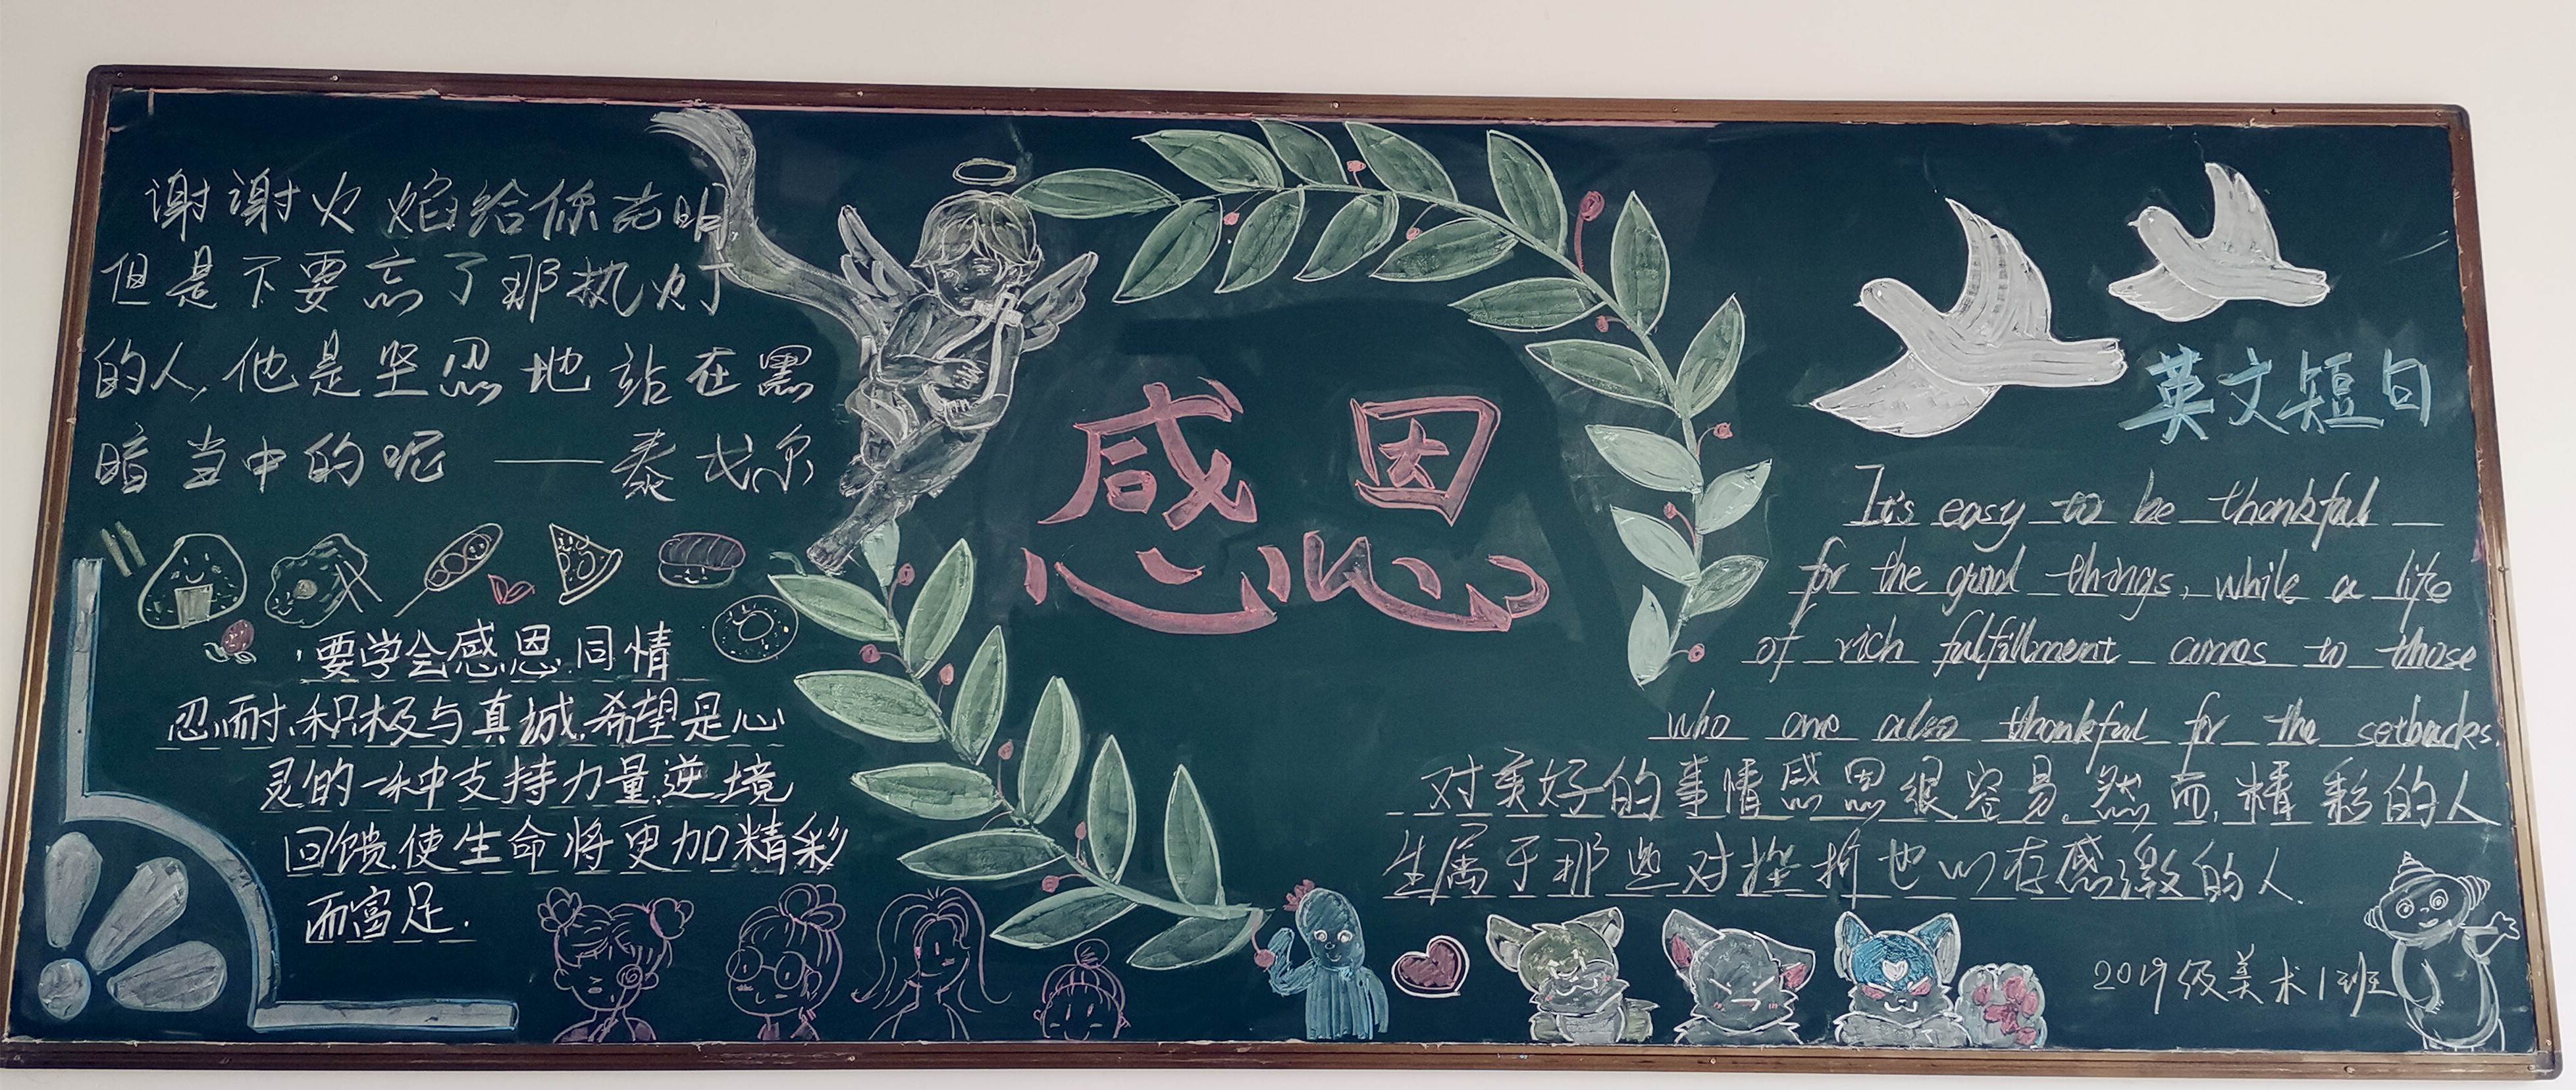 谢谢火焰给你光明
但是不要忘了那执灯
的人,他是坚忍地站在黑
暗当中的呢 ——泰戈尔
要学会感恩.同情
忍耐、积极与真城.希望是心
灵的一种支持力量.逆境
回馈.使生命将更加精彩
而富足.
感恩
英文短句
It's easy to be thankful
for the good things, while a life
of rich fulfillment comes to those
who are also thankful for the setbacks.
对美好的事情感恩很容易.然而,精彩的人
生属于那些对挫折也心存感激的人.
2019级美术1班